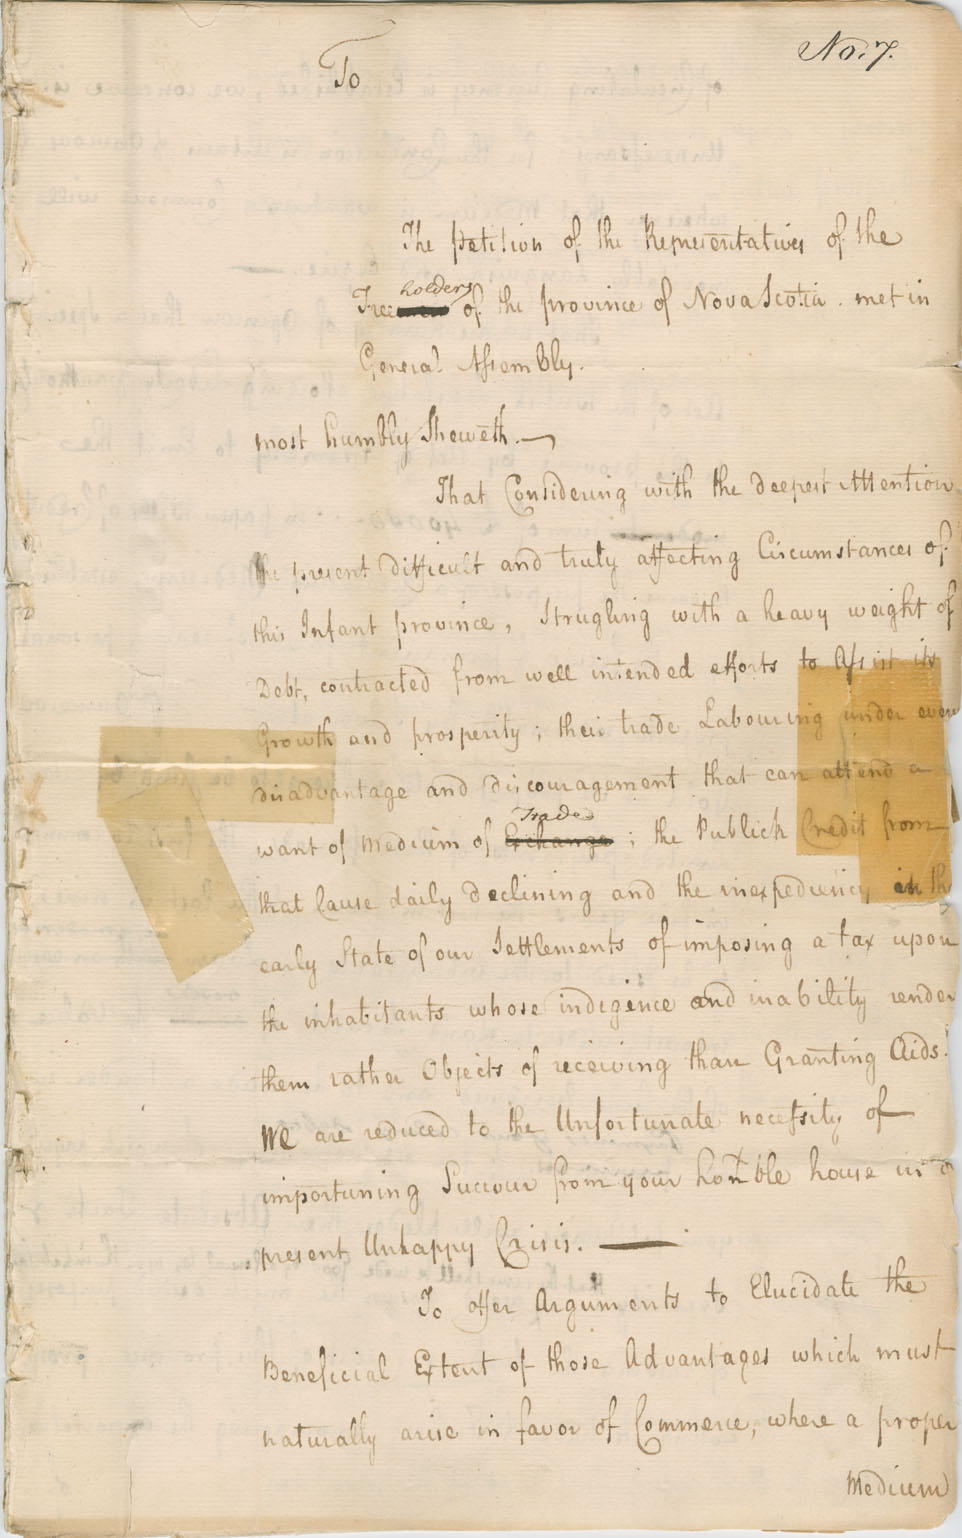 No. 7.
To
The petition of the Representatives of the
holders
Free of the province of Nova Scotia. met in
General Assembly.
most humbly Sheweth.
That Considering with the deepest Attention
the present difficult and truly affecting Circumstances of
this Infant province, Strugling with a heavy weight of
Debt, contracted from well intended efforts to Assist its
Growth and prosperity; their trade Labouring under every
disadvantage and discouragement that can attend a
Trade
want of Medium of Exchange; the Publick Credit from
that Cause daily declining and the inexpediency in the
early State of our Settlements of imposing a tax upon
the inhabitants whose indigence and inability render
them rather Objects of receiving than Granting Aids.
We are reduced to the Unfortunate necessity of
importuning Succour from your honble house in
present Unhappy Crisis.
To offer Arguments to Elucidate the
Beneficial Extent of those Advantages which must
naturally arise in favor of Commerce, where a proper
Medium